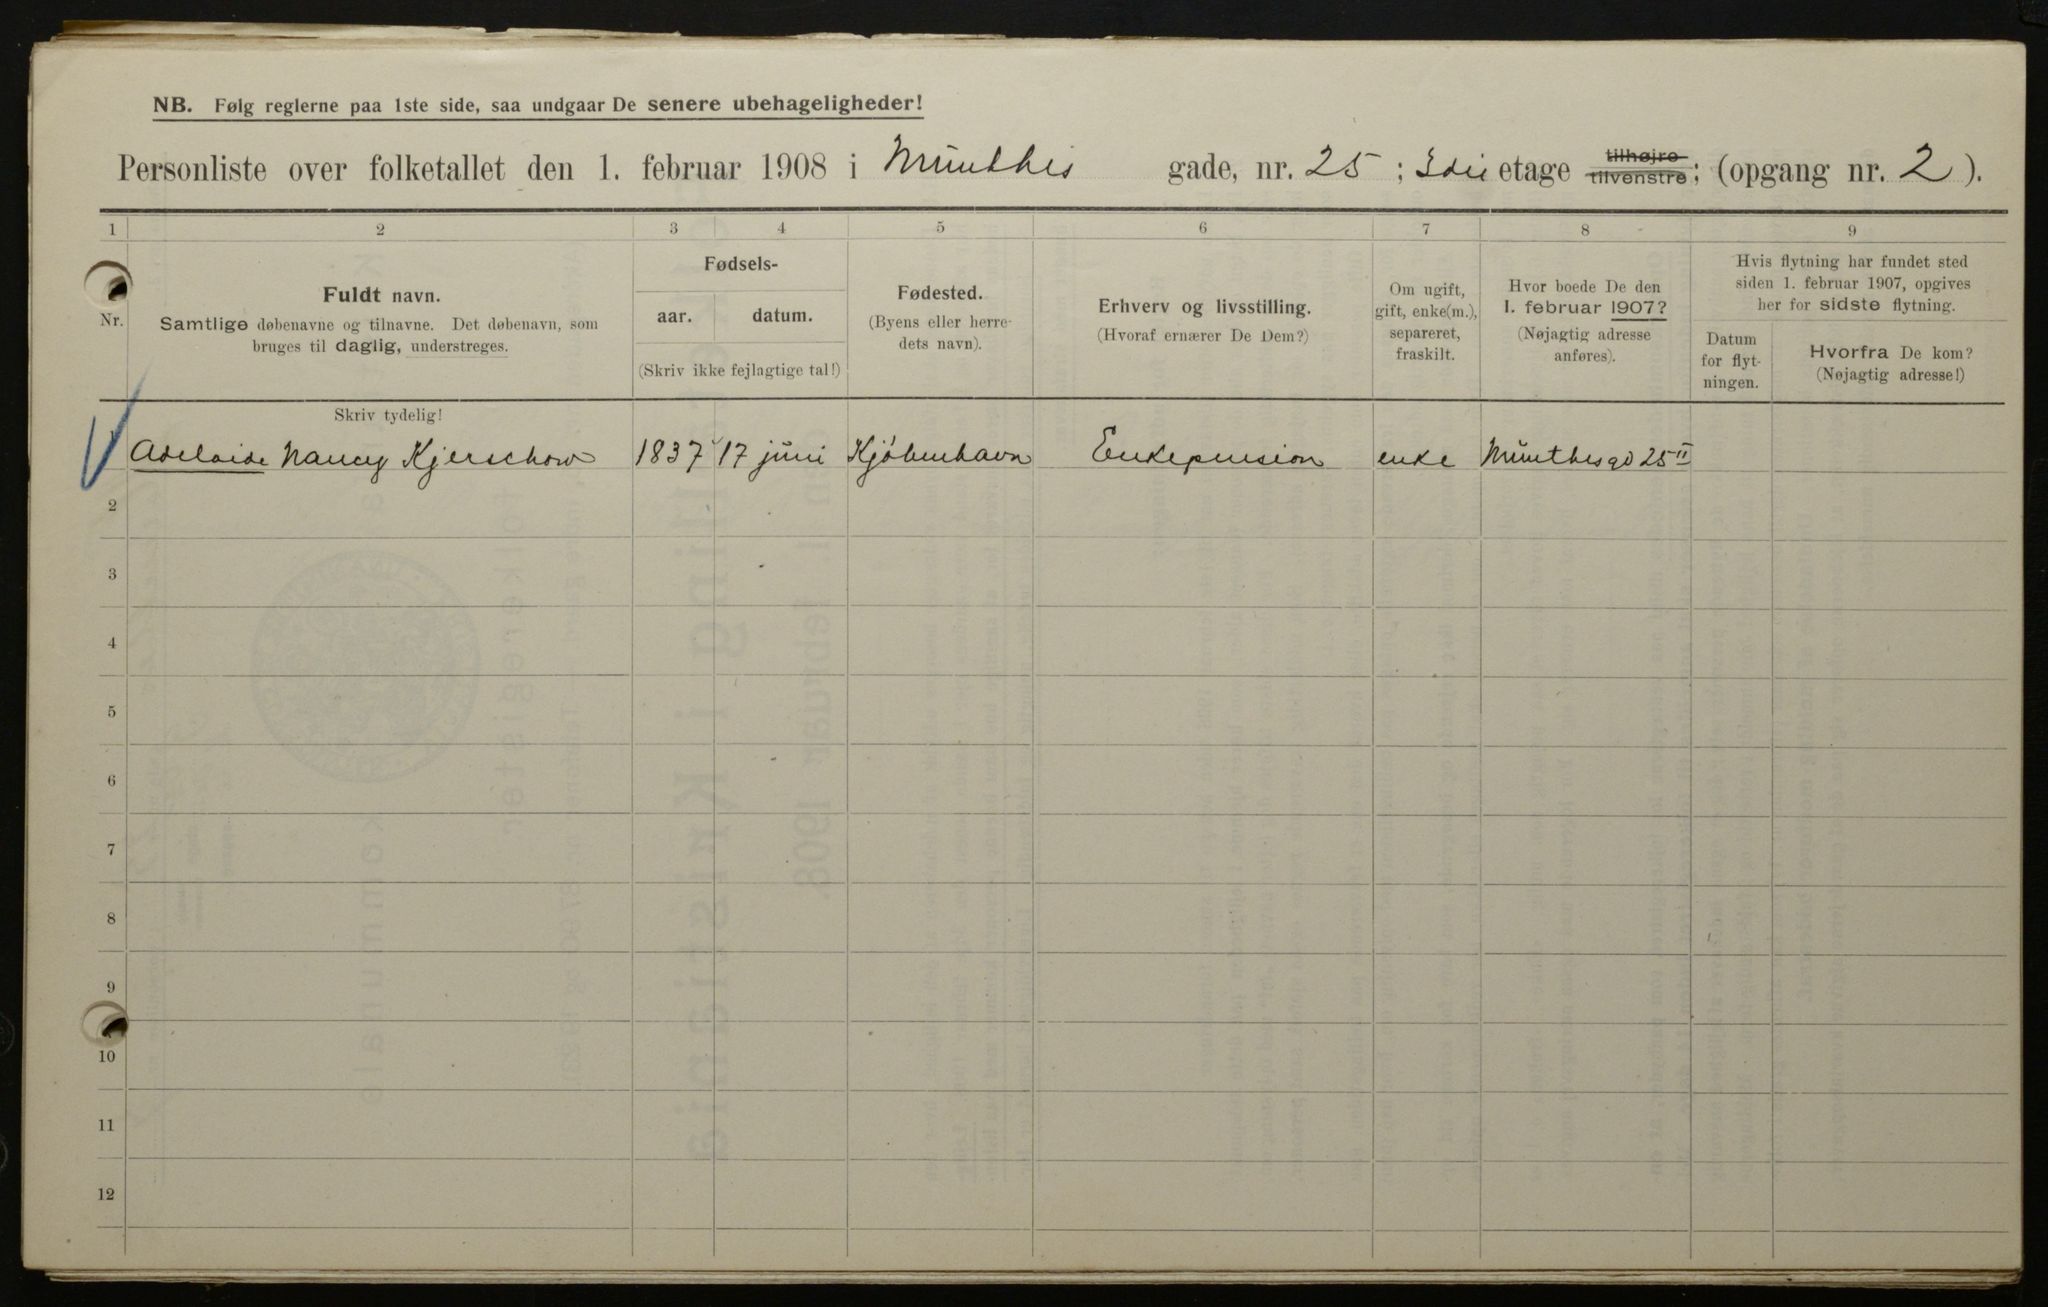 NB. Følg reglerne paa 1ste side, saa undgaar De senere ubehageligheder!
Personliste over folketallet den 1. februar 1908 i Munthes gade, nr. 25 ; 3die etage tilhøjre tilvenstre; (opgang nr. 2 ).
1 2 3 4 5 6 7 8 9
Nr.
Fuldt navn.
Samtlige døbenavne og tilnavne. Det døbenavn, som
bruges til daglig, understreges.
Skriv tydelig!
Fødsels-
aar. datum.
(Skriv ikke fejlagtige tal!)
Fødested.
(Byens eller herre-
dets navn).
Erhverv og livsstilling.
(Hvoraf ernærer De Dem?)
Om ugift,
gift, enke(m.),
separeret,
fraskilt.
Hvor boede De den
1. februar 1907?
(Nøjagtig adresse
anføres).
Hvis flytning har fundet sted
siden 1. februar 1907, opgives
her for sidste flytning.
Datum
for flyt-
ningen.
Hvorfra De kom?
(Nøjagtig adresse!)
1 Adelaide Nancy Kjerschow 1837 17 juni Kjøbenhavn Enkepension enke Munthesgd 25 II
2
3
4
5
6
7
8
9
10
11
12